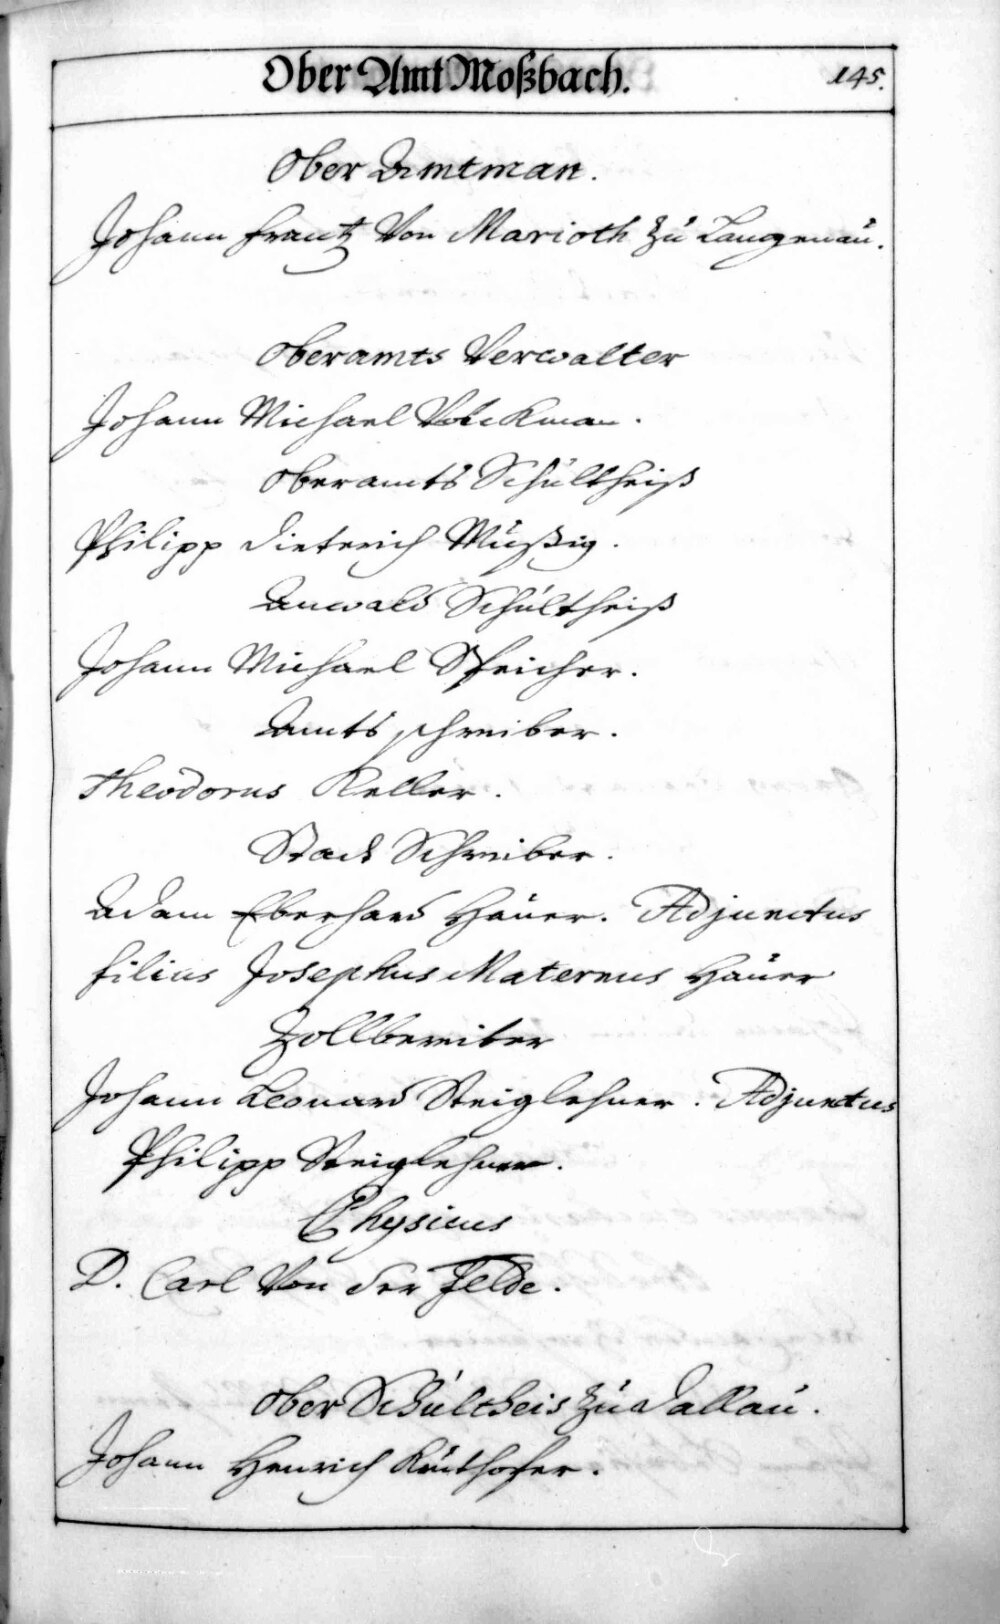 Ober Amt Moßbach. 145.
Ober Amtman.
Johann Frantz Von Marioth zu Langenau.
Oberamts Verwalter
Johann Michael
Oberamts Schultheiß
Philipp Dieterich Müßig.
Anwald Schultheiß
Johann Michael Speicher.
Amts schreiber.
Theodorus Keller.
Stadt Schreiber.
Adam Eberhard Hauer. Adjunctus
filius Josephus Maternus Hauer
Zollbereiter
Johann Leonard Steiglehner. Adjunctus
Philipp Steiglehner.
Physicus
D. Carl Von der Felde.
Ober Schultheis zu Dallau.
Johann Henrich